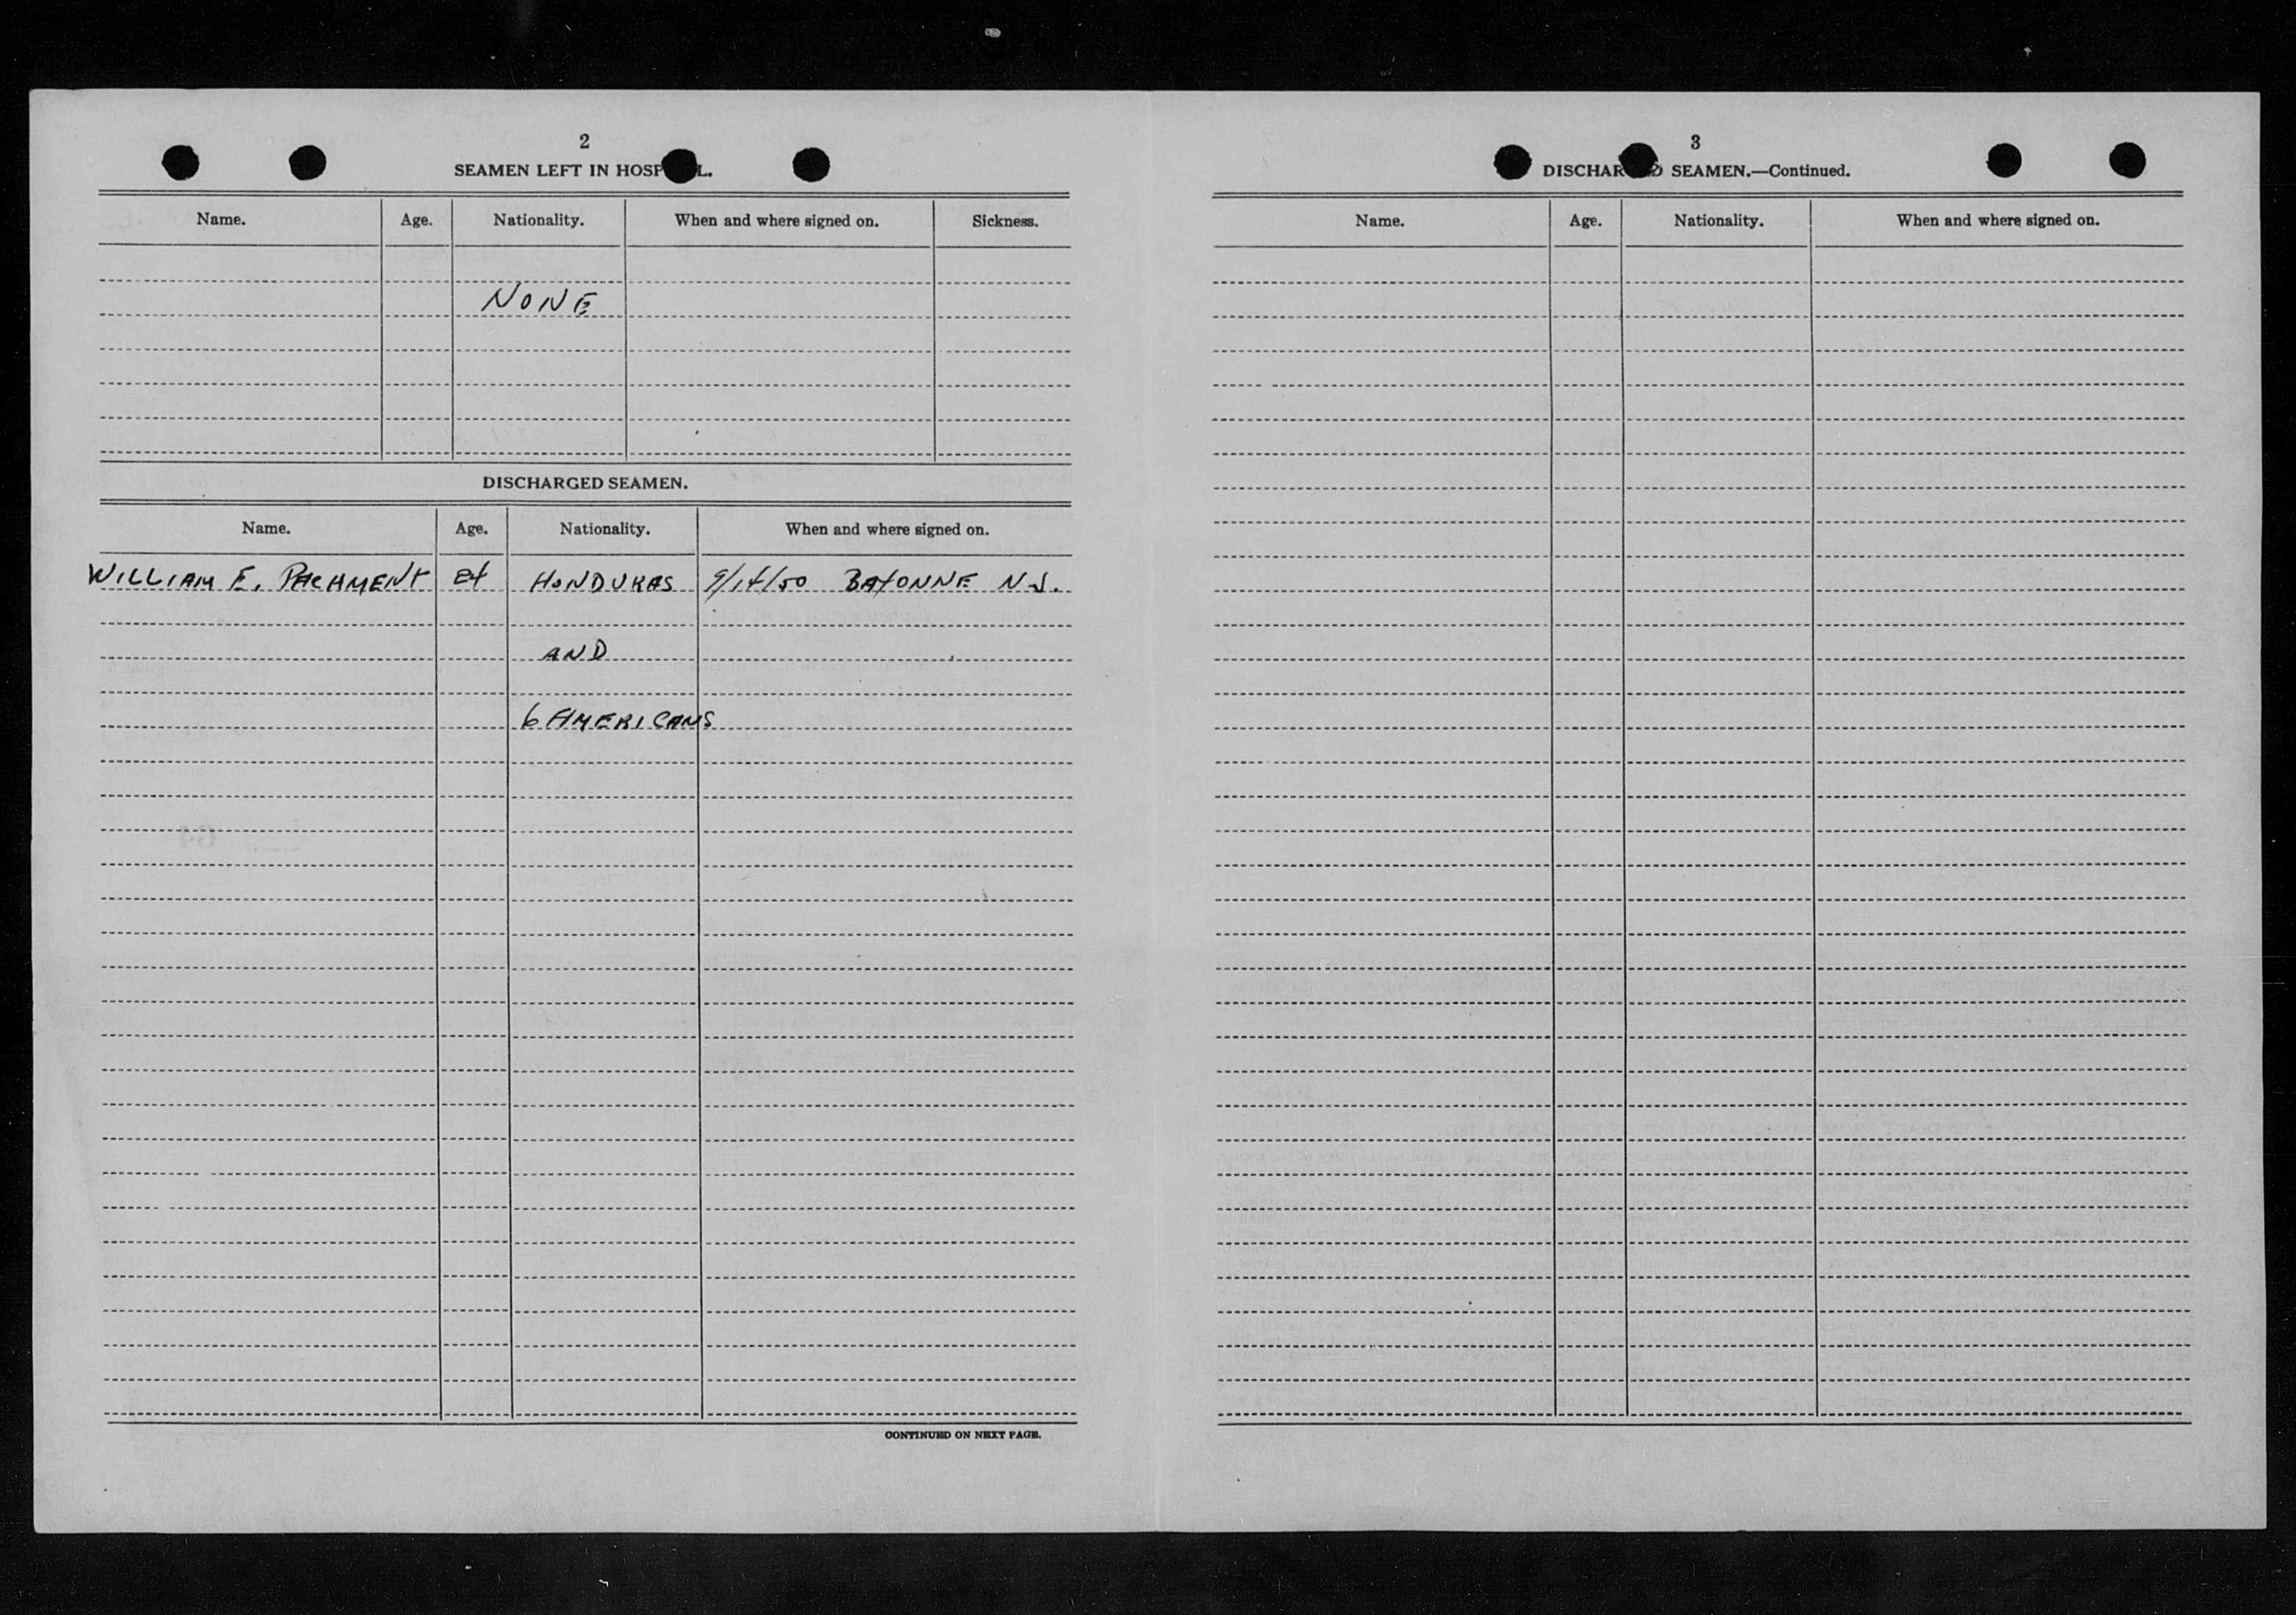 2
SEAMEN LEFT IN HOSP L.
Name. Age. Nationality. When and where signed on. Sickness.
NONE
DISCHARGED SEAMEN.
Name. Age. Nationality. When and where signed on.
WILLIAM E. 24 HONDURAS 9/14/50 BAYONNE N.J.
AND
6 AMERICANS
CONTINUED ON NEXT PAGE.
3
DISCHAR D SEAMEN.—Continued.
Name. Age. Nationality. When and where signed on.